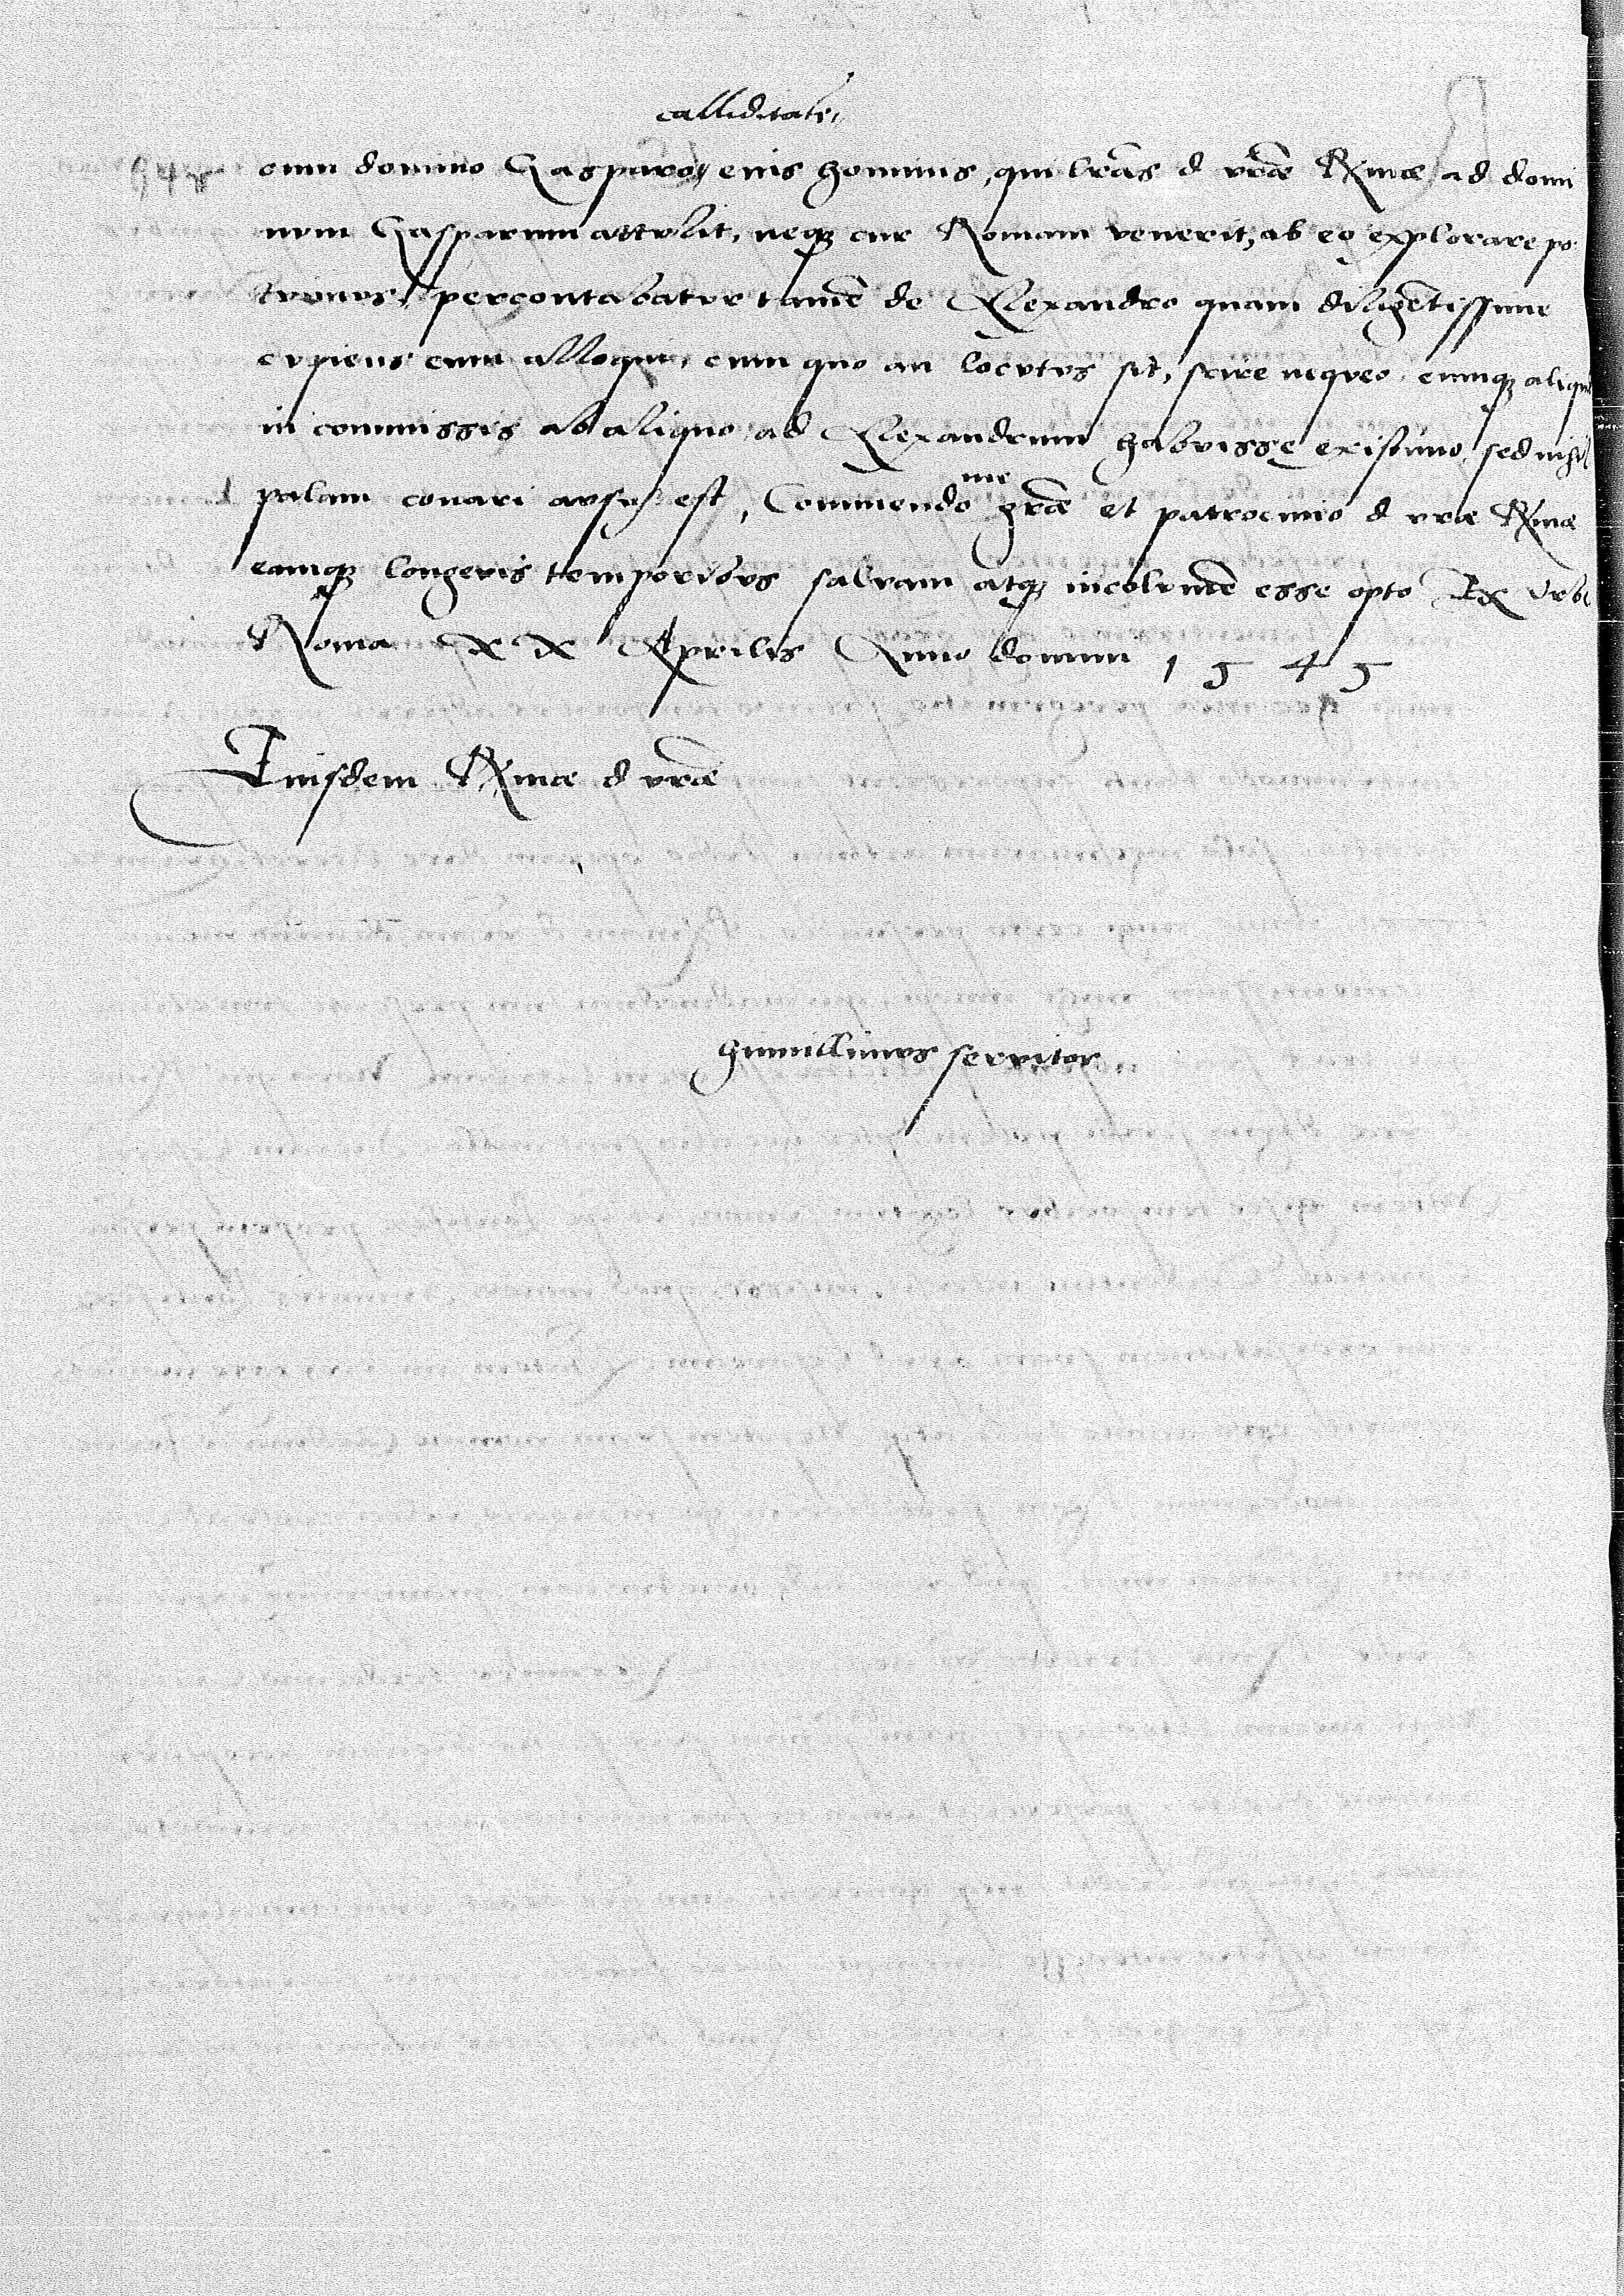 calliditate,
94v cum domino Casparo, eius hominis, qui lrãs d vrãe Rxmae ad domi
num Casparum attulit, neq3 cur Romam venerit, ab eo explorare po
tuimus, percontabatur tamẽ de Alexandro quam diligẽtissime
cupiens eum alloqui, cum quo an locutus sit, scire nequeo, eumq3 aliqu
in commissis ab aliquo ad Alexandrum habuisse existimo, sed nihil
palam conari ausus est, Commendo me grãe et patrocinio d vrae Rxmae
eamq3 longevis temporibus salvam atq3 incolumẽ esse opto Ex Urbe
Roma XX Aprilis Anno domini 1545
Eiusdem Rxmae d vrãe
humillimus servitor